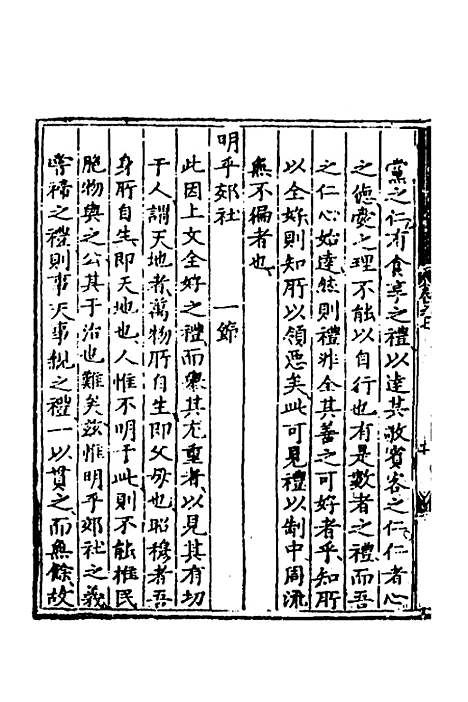 黨之仁有食享之禮以達其敬賓客之仁仁者心
之德愛之理不能以自行也有是數者之禮而吾
之仁心始達然則禮非全其善之可好者乎知所
以全好則知所以領惡矣此可見禮以制中周流
無不徧者也
明乎郊社　一節
此因上文全好之禮而舉其尤重者以見其有切
于人謂天地者萬物所自生即父母也昭穆者吾
身所自生即天地也人惟不明于此則不能推民
胞物與之公其于治也難矣茲惟明乎郊社之義
嘗禘之禮則事天事親之禮一以貫之而無餘故